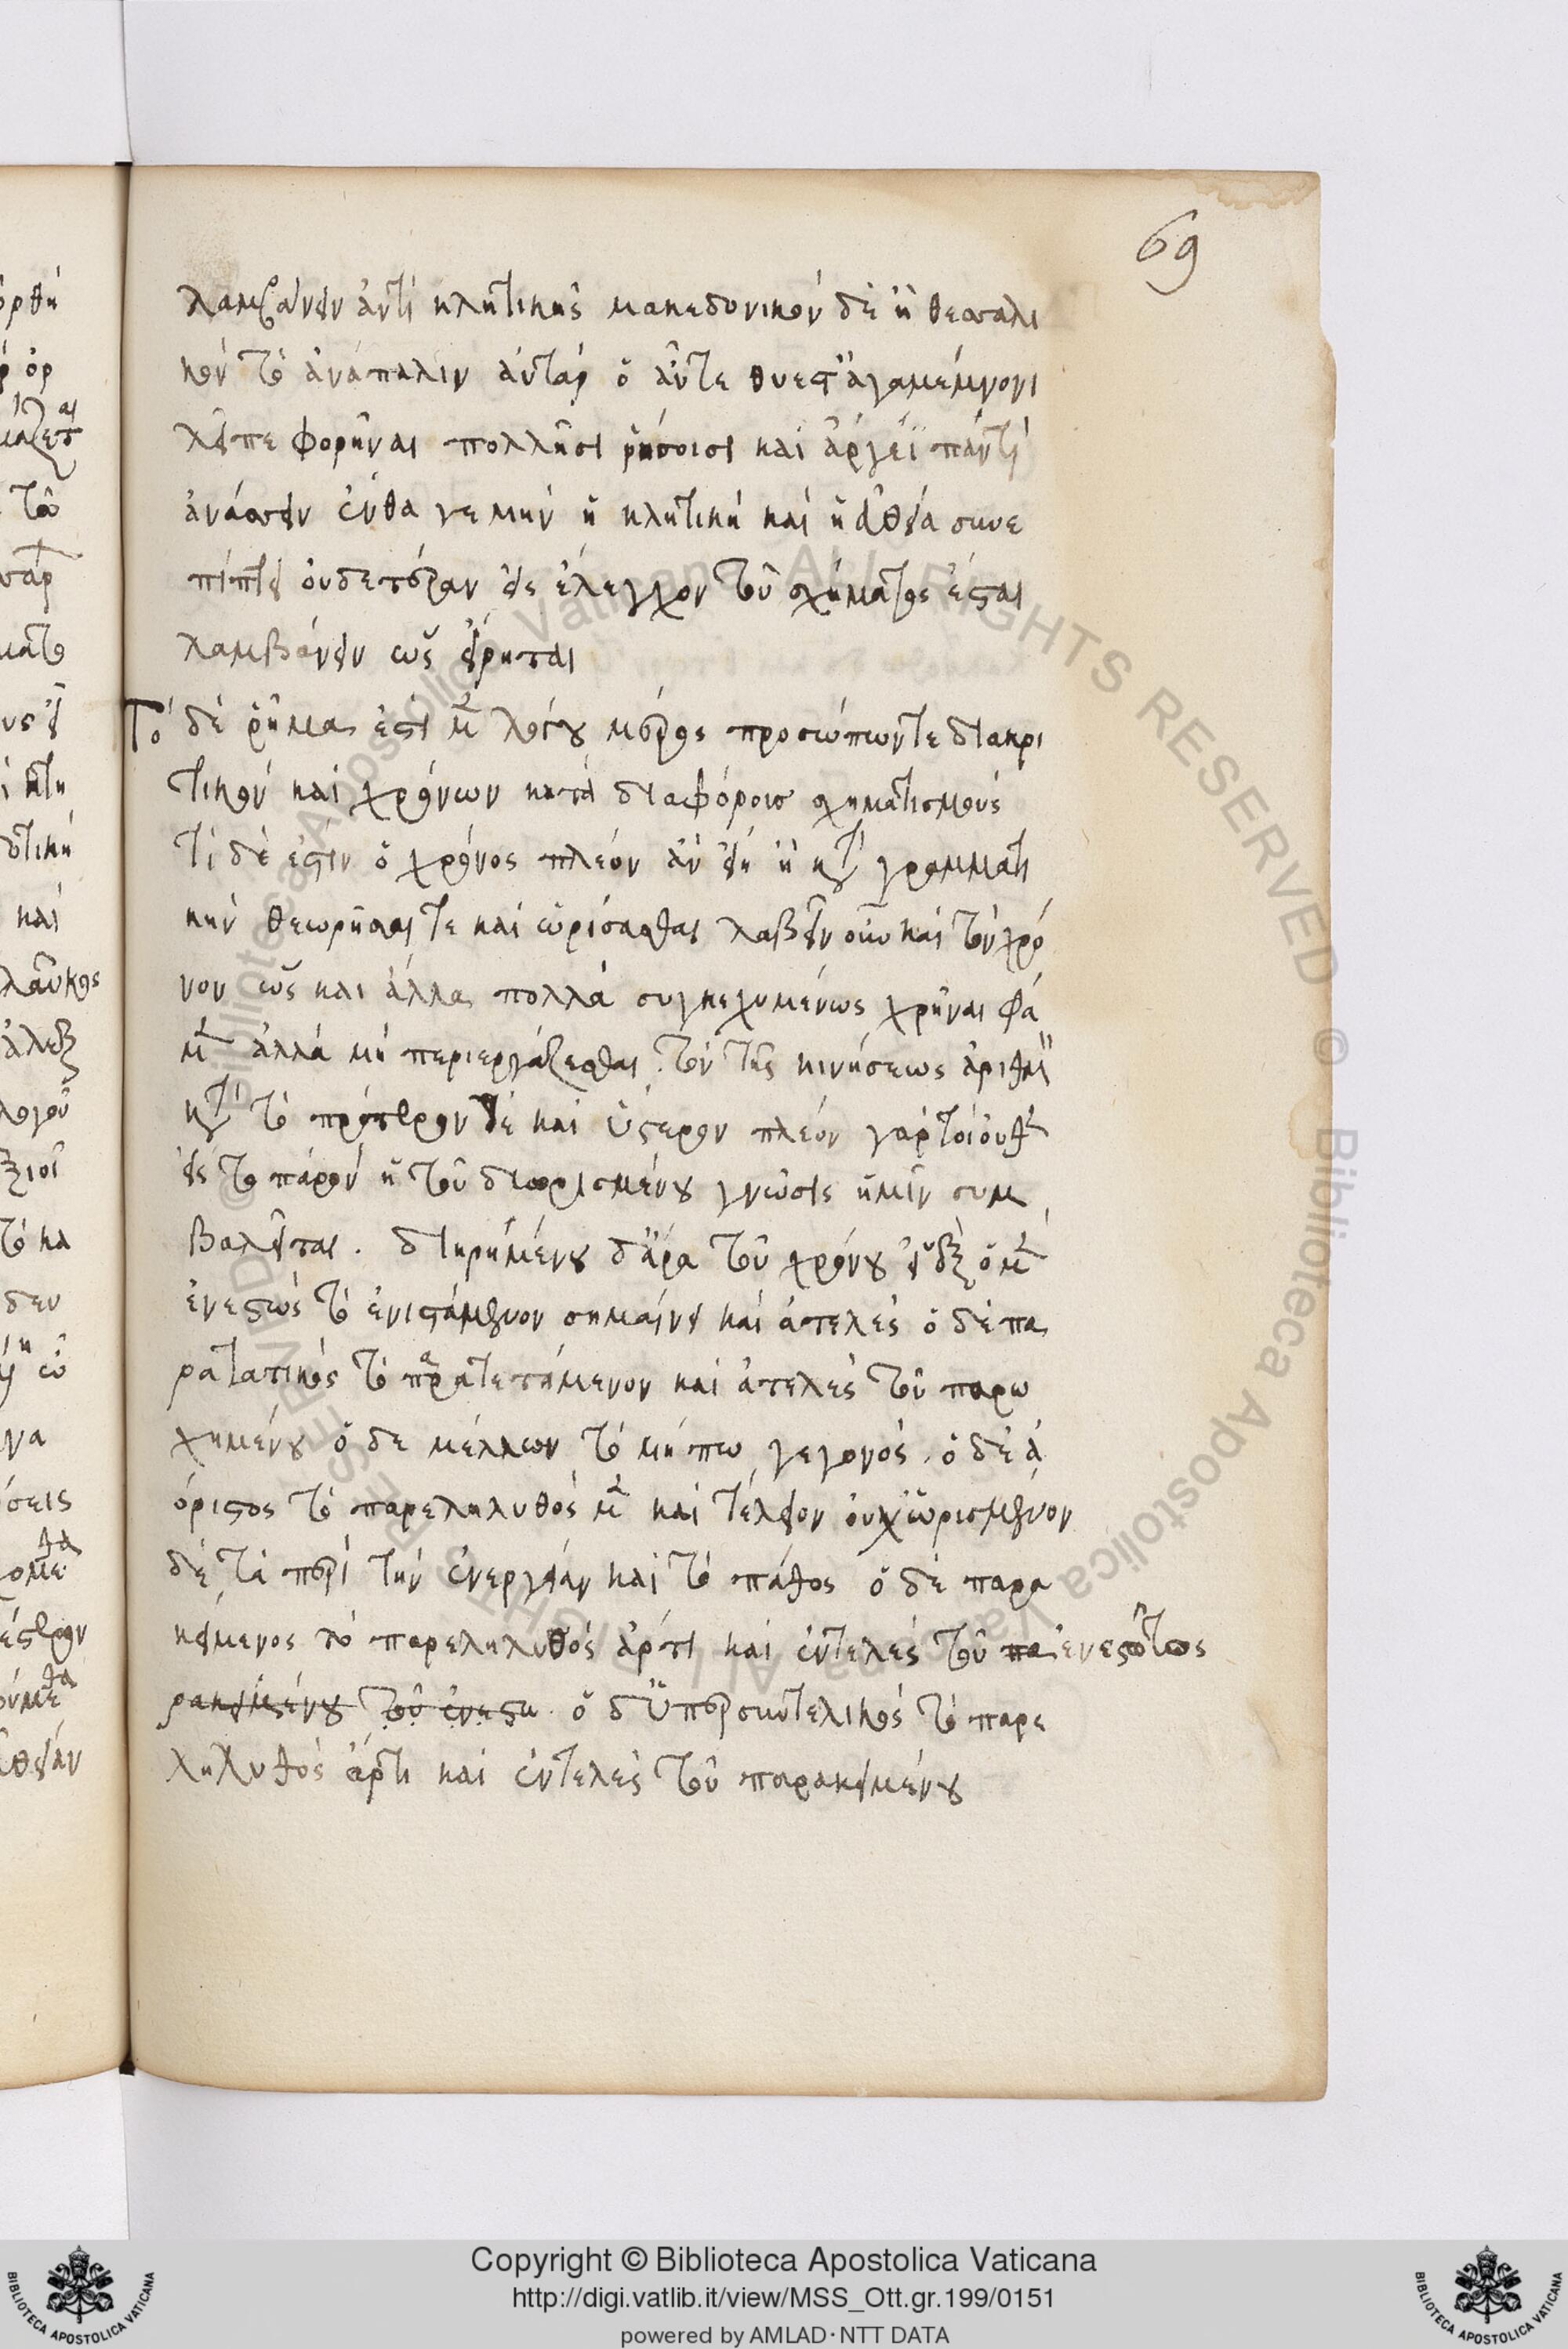 69
λαμβάνειν ἀντὶ κλητικῆς μακεδονικὸν δὲ ἢ θεσσαλι
κὸν τὸ ἀνάπαλιν αὐτὰρ ὃ αὖτε θυεστ' ἀγαμέμνονι
λεῖπε φορῆναι πολλῇσι νήσοισι καὶ ἄργεϊ παντὶ
ἀνάσσειν ἔνθα γε μὴν ἡ κλητικὴ καὶ ἡ εὐθεῖα συνε
πίπτει οὐδετέραν εἰς ἔλεγχον τοῦ σχήματος ἔσται
λαμβάνειν ὡς εἴρηται
Τὸ δὲ ῥῆμα ἐστὶ μὲν λόγου μέρος προσώπων τε διακρι
τικὸν καὶ χρόνων κατὰ διαφόροις σχηματισμοὺς
τί δέ ἐστιν ὁ χρόνος πλέον ἂν εἴη ἢ κατὰ γραμματι
κὴν θεωρῆσαι τε καὶ ὡρίσασθαι λαβεῖν οὖν καὶ τὸν χρό
νον ὡς καὶ ἄλλα πολλὰ συγκεχυμένως χρῆναι φά
μεν ἀλλὰ μὴ περιεργάζεσθαι τὸν τῆς κινήσεως ἀριθμὸν
κατὰ τὸ πρότερον δὲ καὶ ὕστερον πλέον γάρ τοι οὐθὲν
εἰς τὸ παρὸν ἡ τοῦ διωρισμένου γνῶσις ἡμῖν συμ
βαλεῖται. διῃρημένου δ' ἄρα τοῦ χρόνου ὁ μὲν
ἐνεστὼς τὸ ἐνιστάμενον σημαίνει καὶ ἀτελὲς ὁ δὲ πα
ρατατικὸς τὸ παρατεταμένον καὶ ἀτελὲς τοῦ παρω
χημένου ὁ δὲ μέλλων τὸ μήπω γεγονός. ὁ δὲ ἀ
όριστος τὸ παρεληλυθὸς μὲν καὶ τέλειον οὐχ ὡρισμένον
δὲ τὰ περὶ τὴν ἐνέργειαν καὶ τὸ πάθος ὁ δὲ παρα
κείμενος τὸ παρεληλυθὸς ἄρτι καὶ ἐντελὲς τοῦ πα ἐνεστῶτος
ρακειμένου τοῦ ἐνεστω ὁ δ' ὑπερσυντελικὸς τὸ παρε
ληλυθὸς ἄρτι καὶ ἐντελὲς τοῦ παρακειμένου
Copyright © Biblioteca Apostolica Vaticana
http://digi.vatlib.it/view/MSS_Ott.gr.199/0151
powered by AMLAD·NTT DATA